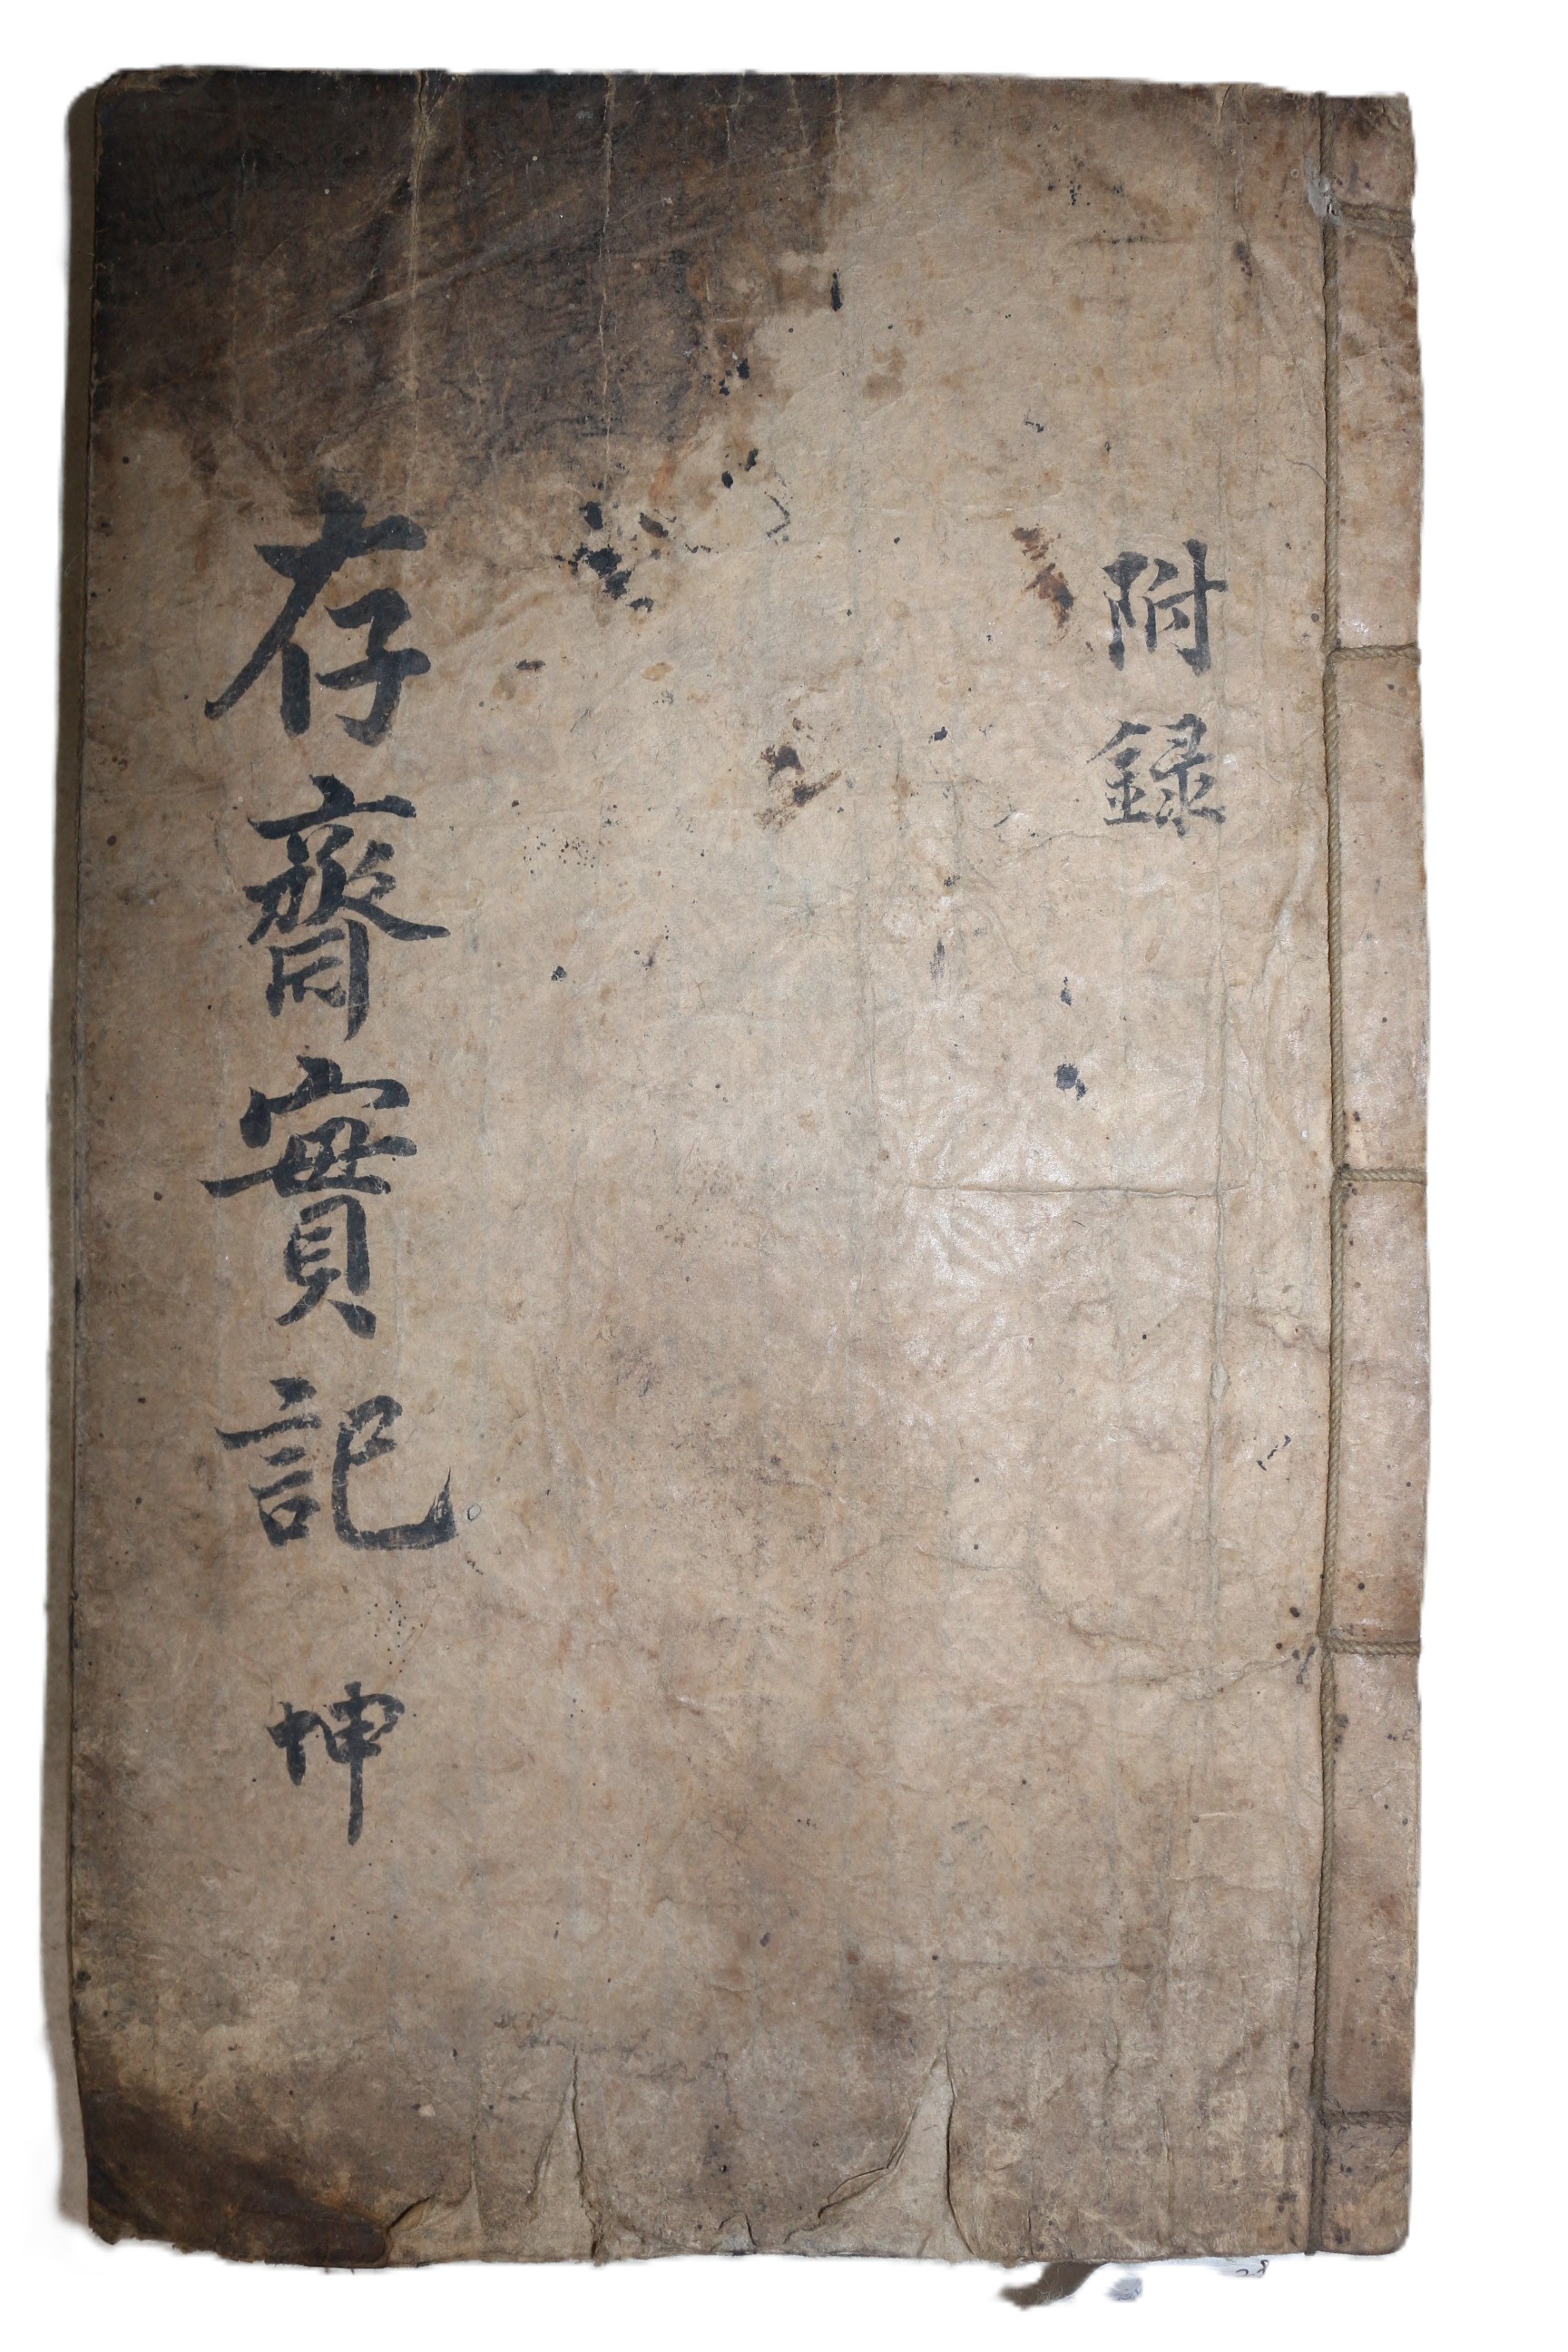 附録
存齋實記 坤